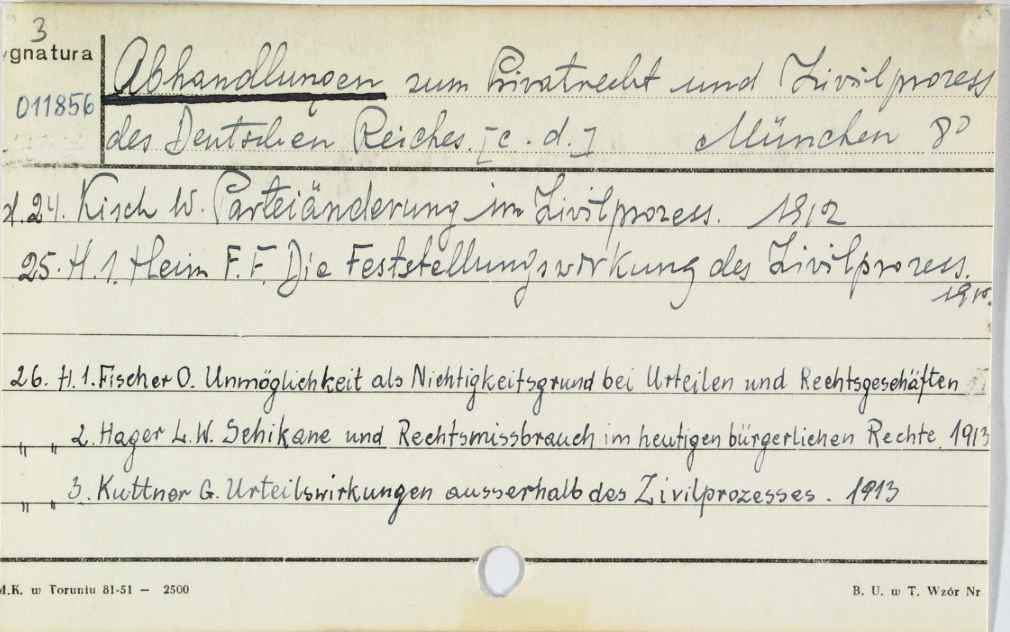 3
ygnatura
Abhandlungen zum Privatrecht und Zivilprozess
011856
des Deutschen Reiches. [c. d.] München 8°
24. Kisch W. Parteiänderung im Zivilprozess. 1912
25. H. 1. Heim F. F. Die Feststellungswirkung des Zivilprozess.
26. H. 1. Fischer O. Unmöglichkeit als Nichtigkeitsgrund bei Urteilen und Rechtsgeschäften
" " 2. Hager L. W. Schikane und Rechtsmissbrauch im heutigen bürgerlichen Rechte. 1913
" " 3. Kuttner G. Urteilswirkungen ausserhalb des Zivilprozesses. 1913
M.K. w Toruniu 81-51 — 2500
B. U. w T. Wzór Nr